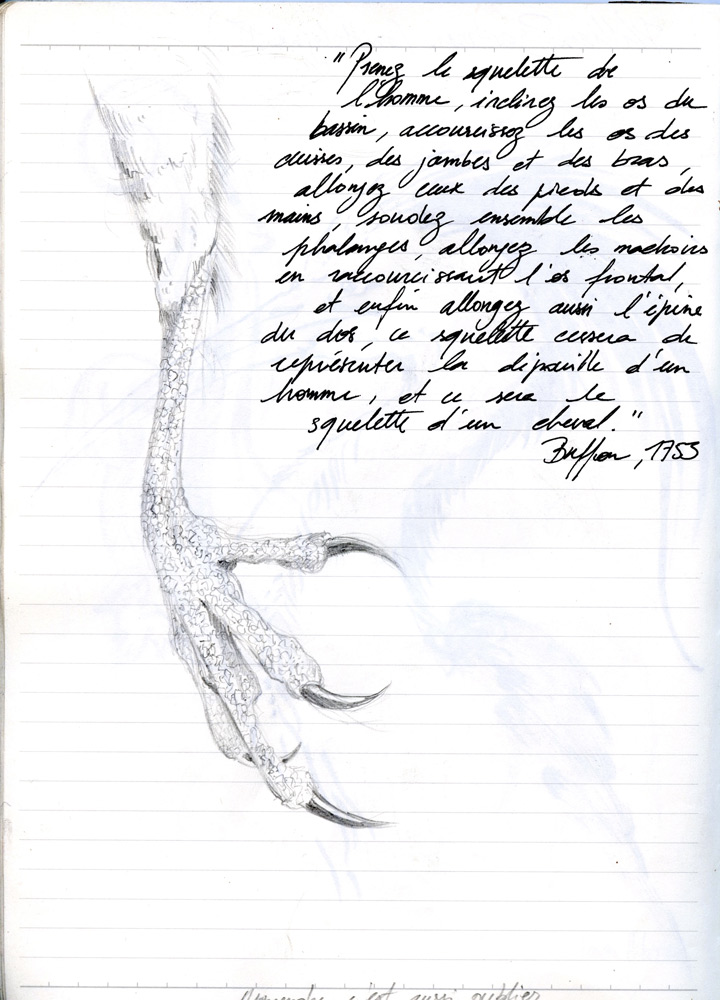 "Prenez le squelette de
l'homme, inclinez les os du
bassin, accourcissez les os des
cuisses, des jambes et des bras,
allongez ceux des pieds et des
mains, soudez ensemble les
phalanges, allongez les machoires
en raccourcissant l'os frontal,
et enfin allongez aussi l'épine
du dos, ce squelette cessera de
représenter la dépouille d'un
homme, et ce sera le
squelette d'un cheval."
Buffon, 1753
c'est aussi oublier